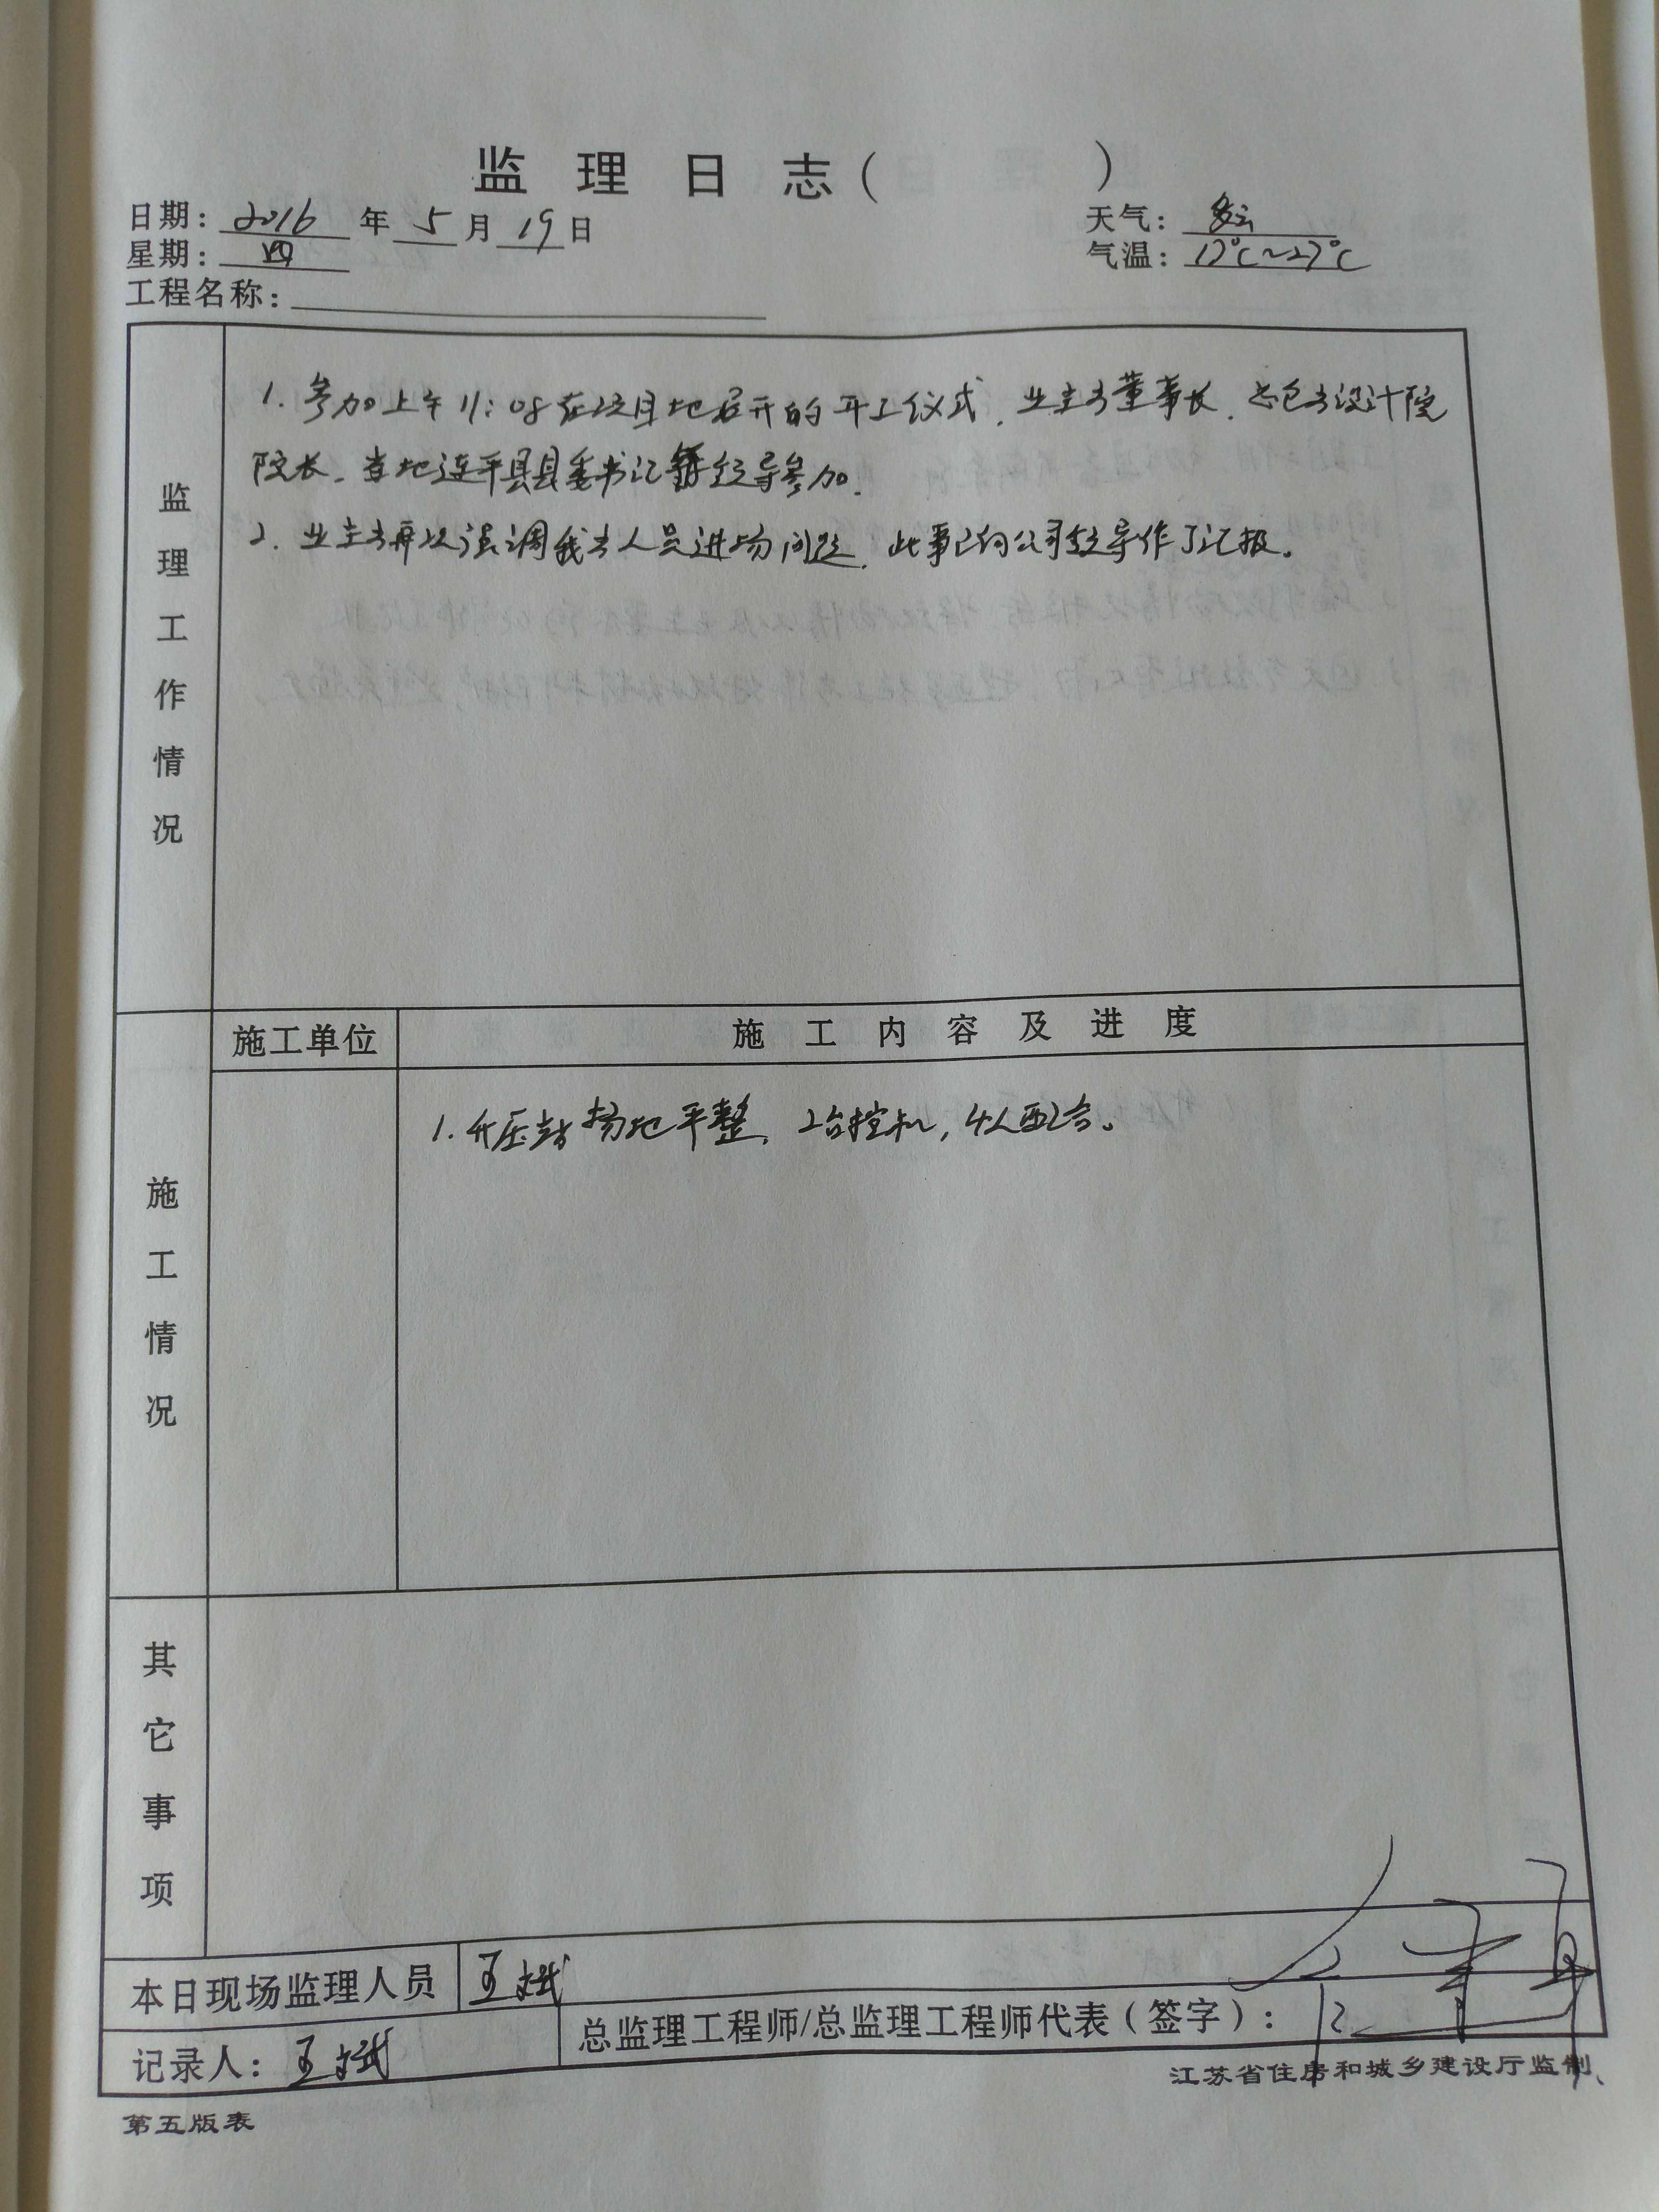 监 理 日 志（ ）
日期：2016 年 5 月 19 日 天气：多云
星期：四 气温：17℃~27℃
工程名称：
监理工作情况
1. 参加上午11:08在项目地召开的开工仪式，业主方董事长、总包方设计院
院长、当地连平县县委书记等领导参加。
2. 业主方再次强调我方人员进场问题，此事已向公司领导作了汇报。
施工单位 施 工 内 容 及 进 度
施工情况
1. 升压站场地平整，2台挖机，4人配合。
其它事项
本日现场监理人员 王斌
记录人：王斌 总监理工程师/总监理工程师代表（签字）：
江苏省住房和城乡建设厅监制
第五版表